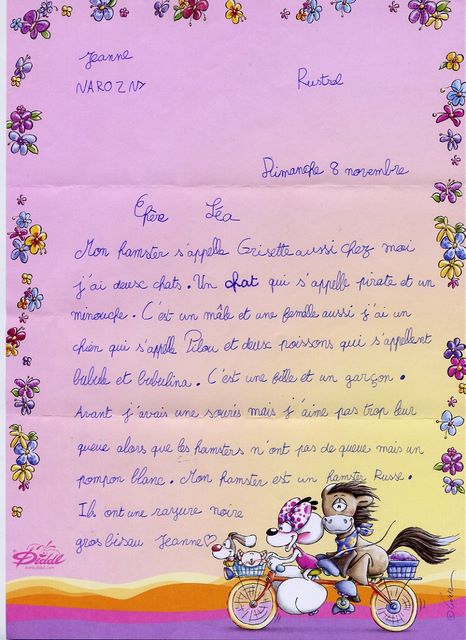 Jeanne
NAROZNY
Rustrel
Dimanche 8 novembre
Chère Léa
Mon hamster s'appelle Grisette aussi chez moi
j'ai deux chats. Un chat qui s'appelle pirate et un
minouche. C'est un mâle et une femelle aussi j'ai un
chien qui s'appelle Pilou et deux poissons qui s'appellent
bubule et bubulina. C'est une fille et un garçon.
Avant j'avais une souris mais j'aime pas trop leur
queue alors que les hamsters n'ont pas de queue mais un
pompon blanc. Mon hamster est un hamster Russe.
Ils ont une rayure noire
gros bisau Jeanne♡
Diddl
www.diddl.com